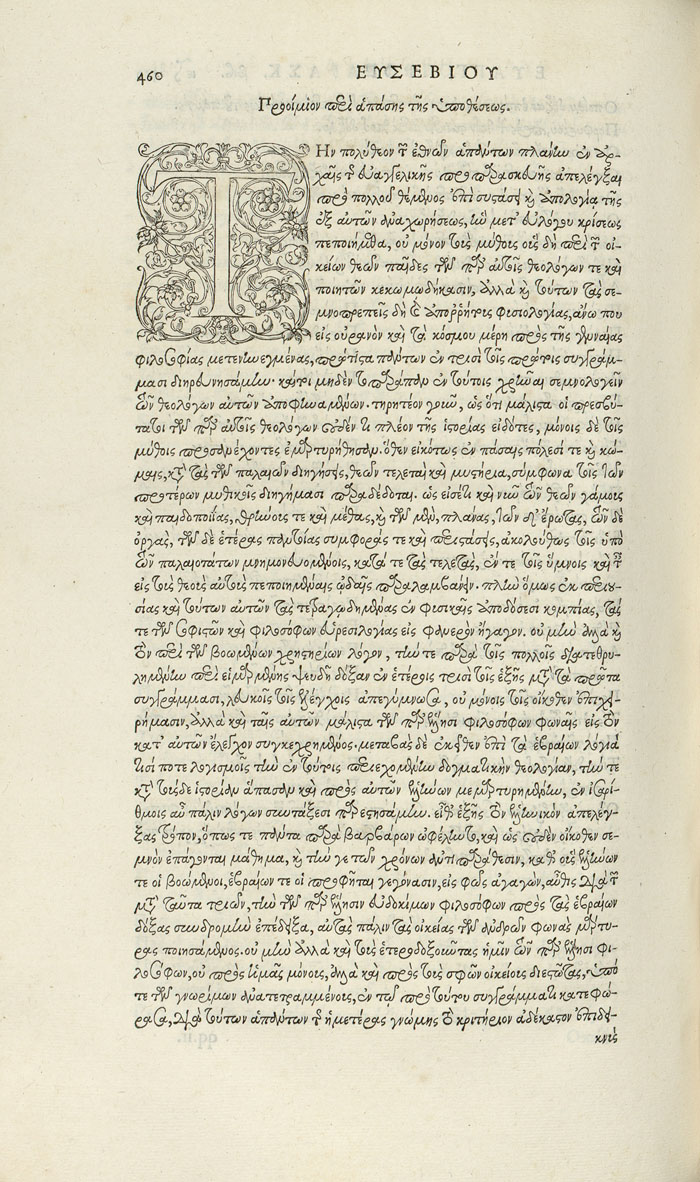 460 ΕΥΣΕΒΙΟΥ
Προοίμιον περὶ ἁπάσης τῆς ὑποθέσεως.
ΤΗν πολύθεον τῶν ἐθνῶν ἁπάντων πλάνην ἐν ἀρ-
χαῖς τῆς εὐαγγελικῆς προπαρασκευῆς ἀπελέγξαι
πρὸ πολλοῦ θέμενος ἐπὶ συστάσει καὶ ἀπολογία τῆς
ἐξ αὐτῶν ἀναχωρήσεως, ἣν μετ' εὐλόγου κρίσεως
πεποιήμεθα, οὐ μόνον τοὺς μύθους οὓς δὴ περὶ τῶν οἰ-
κείων θεῶν παῖδες τῶν παρ' αὐτοῖς θεολόγων τε καὶ
ποιητῶν κεκωμωδήκασιν, ἀλλὰ καὶ τούτων τὰς σε-
μνοπρεπεῖς δὴ καὶ ἀπορῤῥήτους φυσιολογίας, ἄνω που
εἰς οὐρανὸν καὶ τὰ κόσμου μέρη πρὸς τῆς γενναίας
φιλοσοφίας μετενηνεγμένας, πρώτιστα πάντων ἐν τρισὶ τοῖς πρώτοις συγγράμ-
μασι διηρευνησάμην· καίτοι μηδὲν τοπαράπαν ἐν τούτοις χρῆναι σεμνολογεῖν
τῶν θεολόγων αὐτῶν ἀποφηναμένων. τηρητέον γοῦν, ὡς ὅτι μάλιστα οἱ πρεσβύ-
τατοι τῶν παρ' αὐτοῖς θεολόγων οὐδέν τι πλέον τῆς ἱστορίας εἰδότες, μόνοις δὲ τοῖς
μύθοις προσανέχοντες ἐμαρτυρήθησαν. ὅθεν εἰκότως ἐν πάσαις πόλεσί τε καὶ κώ-
μαις, κατὰ τὰς τῶν παλαιῶν διηγήσεις, θεῶν τελεταὶ καὶ μυστήρια, σύμφωνα τοῖς τῶν
προτέρων μυθικοῖς διηγήμασι παραδέδοται. ὡς εἰσέτι καὶ νῦν τῶν θεῶν γάμους
καὶ παιδοποιΐας, θρήνους τε καὶ μέθας, καὶ τῶν μὲν, πλάνας, τῶν δ' ἔρωτας, τῶν δὲ
ὀργὰς, τῶν δὲ ἑτέρας παντοίας συμφοράς τε καὶ περιστάσεις, ἀκολούθως τοῖς ὑπὸ
τῶν παλαιοτάτων μνημονευομένοις, κατά τε τὰς τελετὰς, ἔν τε τοῖς ὕμνοις καὶ ταῖς
εἰς τοὺς θεοὺς αὐτοῖς πεποιημέναις ᾠδαῖς παραλαμβάνειν. πλὴν ὅμως ἐκ περιου-
σίας καὶ τούτων αὐτῶν τὰς τετραγωδημένας ἐν φυσικαῖς ἀποδόσεσι κομπείας, τάς
τε τῶν σοφιστῶν καὶ φιλοσόφων εὑρεσιλογίας εἰς φανερὸν ἤγαγον. οὐ μὴν ἀλλὰ καὶ
τὸν περὶ τῶν βοωμένων χρηστηρίων λόγον, τήν τε παρὰ τοῖς πολλοῖς διατεθρυ-
λημένην περὶ εἱμαρμένης ψευδῆ δόξαν ἐν ἑτέροις τρισὶ τοῖς ἑξῆς μετὰ τὰ πρῶτα
συγγράμμασι, λευκοῖς τοῖς ἐλέγχοις ἀπεγύμνωσα, οὐ μόνοις τοῖς οἴκοθεν ἐπιχει-
ρήμασιν, ἀλλὰ καὶ ταῖς αὐτῶν μάλιστα τῶν παρ' ἕλλησι φιλοσόφων φωναῖς εἰς τὸν
κατ' αὐτῶν ἔλεγχον συγκεχρημένος. μεταβὰς δὲ ἐκεῖθεν ἐπὶ τὰ ἑβραίων λόγια
τισί ποτε λογισμοῖς τὴν ἐν τούτοις περιεχομένην δογματικὴν θεολογίαν, τήν τε
κατὰ τούσδε ἱστορίαν ἅπασαν καὶ πρὸς αὐτῶν ἑλλήνων μεμαρτυρημένην, ἐν ἰσαρί-
θμοις αὖ πάλιν λόγων συντάξεσι παρεστησάμην. εἶθ' ἑξῆς τὸν ἑλληνικὸν ἀπελέγ-
ξας τρόπον, ὅπως τε πάντα παρὰ βαρβάρων ὠφέληντο, καὶ ὡς οὐδὲν οἴκοθεν σε-
μνὸν ἐπάγονται μάθημα, καὶ τήν γε τῶν χρόνων ἀντιπαράθεσιν, καθ' οὓς ἑλλήνων
τε οἱ βοώμενοι, ἑβραίων τε οἱ προφῆται γεγόνασιν, εἰς φῶς ἀγαγὼν, αὖθις διὰ τῶν
μετὰ ταῦτα τριῶν, τὴν τῶν παρ' ἕλλησιν εὐδοκίμων φιλοσόφων πρὸς τὰς ἑβραίων
δόξας συνδρομὴν ἐπέδειξα, αὐτὰς πάλιν τὰς οἰκείας τῶν ἀνδρῶν φωνὰς μάρτυ-
ρας ποιησάμενος. οὐ μὴν ἀλλὰ καὶ τοὺς ἑτεροδοξοῦντας ἡμῖν τῶν παρ' ἕλλησι φι-
λοσόφων, οὐ πρὸς ἡμᾶς μόνους, ἀλλὰ καὶ πρὸς τοὺς σφῶν οἰκείους διεστῶτας, ὑπό
τε τῶν γνωρίμων ἀνατετραμμένους, ἐν τῷ πρὸ τούτου συγγράμματι κατεφώ-
ρασα, διὰ τούτων ἁπάντων τῆς ἡμετέρας γνώμης τὸ κριτήριον ἀδέκαστον ἐπιδει-
κνὺς